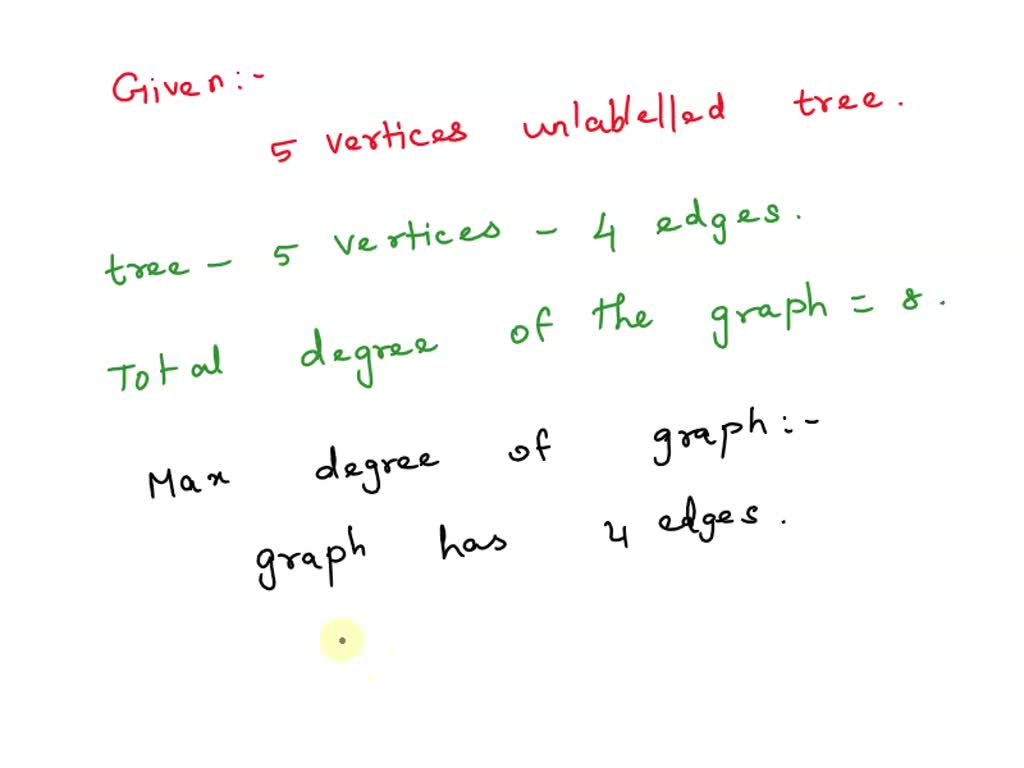 Given:-
5 vertices unlablelled tree.
tree - 5 vertices - 4 edges.
Total degree of the graph = 8.
Max degree of graph:-
graph has 4 edges.